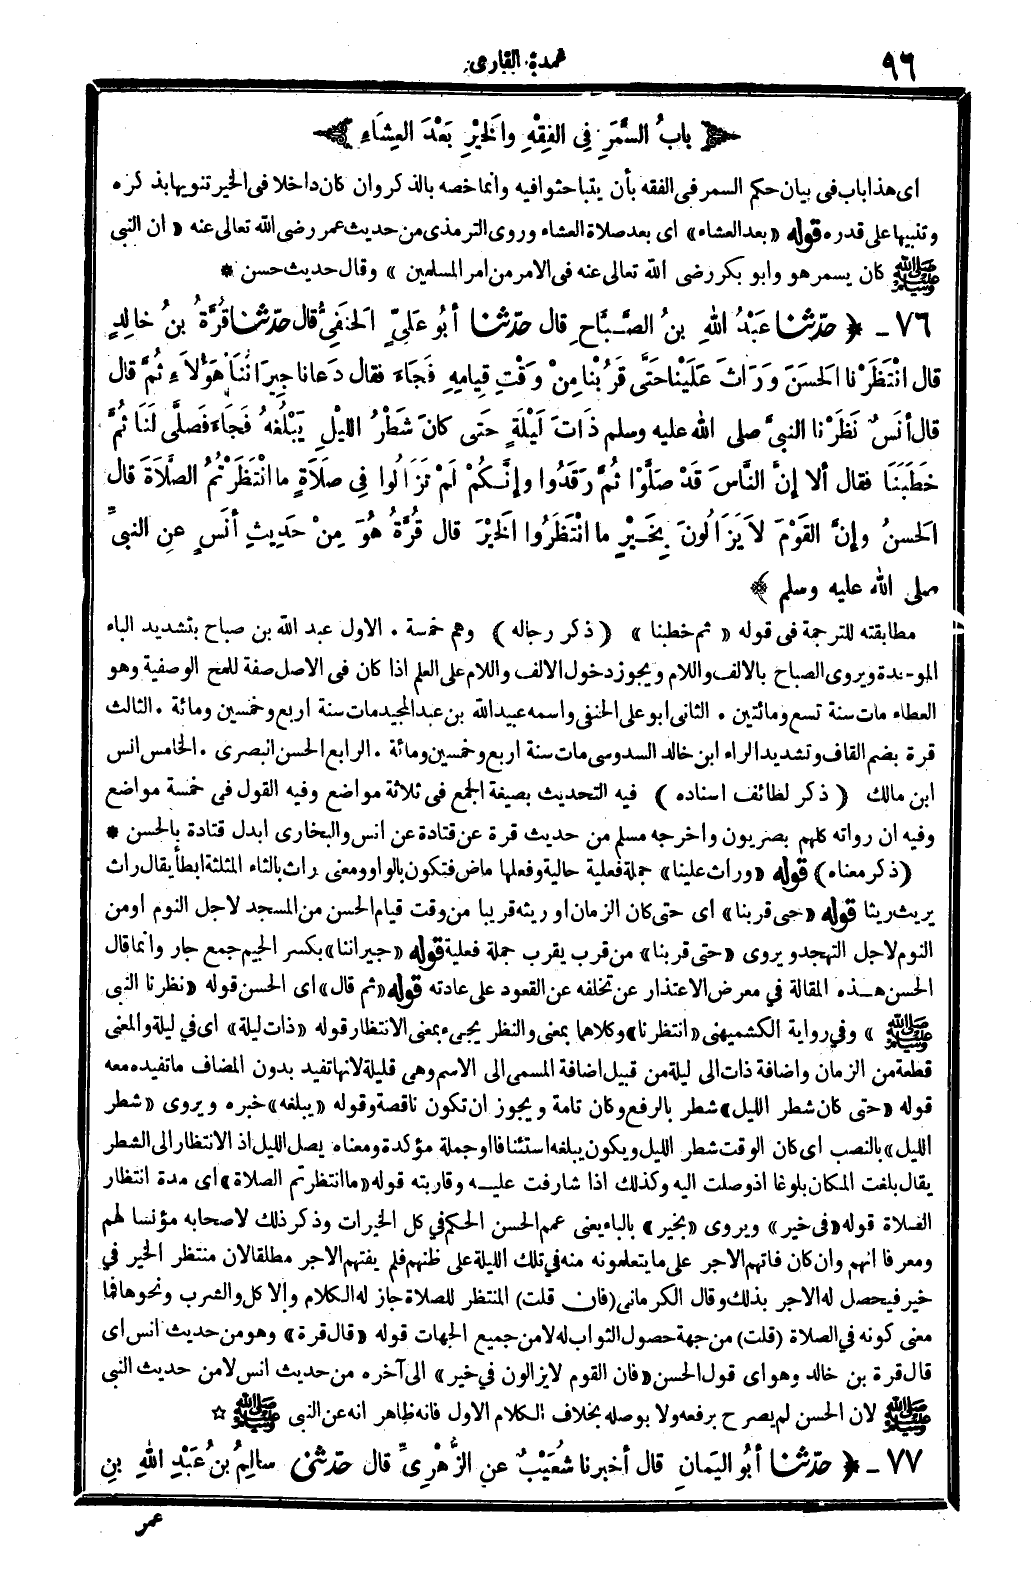 ٩٦
عمدة القارى
بابُ السَّمَرِ فِي الفِقْهِ والْخَيْرِ بَعْدَ العِشَاءِ
اى هذا باب فى بيان حكم السمر فى الفقه بأن يتباحثوا فيه وانما خصه بالذكر وان كان داخلا فى الخير تنويها بذكره
وتنبيها على قدره قوله «بعد العشاء» اى بعد صلاة العشاء وروى الترمذى من حديث عمر رضى الله تعالى عنه «ان النبى
ﷺ كان يسمر هو وابو بكر رضى الله تعالى عنه فى الامر من امر المسلمين» وقال حديث حسن *
٧٦ - ﴿ حدّثنا عَبْدُ اللهِ بنُ الصَّبَّاحِ قال حدّثنا أبُو عَلِيٍّ الحَنَفِيُّ قال حدّثنا قُرَّةُ بنُ خالِدٍ
قال انْتَظَرْنا الحَسَنَ وَرَاثَ عَلَيْنا حَتَّى قَرُبْنا مِنْ وَقْتِ قِيامِهِ فَجَاءَ فقال دَعانا جِيرَانُنَا هَؤُلاَءِ ثُمَّ قال
قال أنَسٌ نَظَرْنا النبيَّ صلى الله عليه وسلم ذَاتَ لَيْلَةٍ حَتى كانَ شَطْرُ اللَّيْلِ يَبْلُغُهُ فَجَاءَ فَصَلَّى لَنَا ثُمَّ
خَطَبَنَا فقال ألا إنَّ النَّاسَ قَدْ صَلَّوْا ثُمَّ رَقَدُوا وإنَّكُمْ لَمْ تَزَالُوا فِي صَلَاةٍ ما انْتَظَرْتُمُ الصَّلَاةَ قال
الحَسنُ وإنَّ القَوْمَ لاَ يَزَالُونَ بِخَيْرٍ ما انْتَظَرُوا الخَيْرَ قال قُرَّةُ هُوَ مِنْ حَدِيثِ أنَسٍ عنِ النبيِّ
صلى الله عليه وسلم ﴾
مطابقته للترجمة فى قوله «ثم خطبنا» (ذكر رجاله) وهم خمسة . الاول عبد الله بن صباح بتشديد الباء
الموحدة ويروى الصباح بالالف واللام ويجوز دخول الالف واللام على العلم اذا كان فى الاصل صفة للمح الوصفية وهو
العطاء مات سنة تسع ومائتين . الثانى ابو على الحنفى واسمه عبيد الله بن عبد المجيد مات سنة اربع وخمسين ومائة . الثالث
قرة بضم القاف وتشديد الراء ابن خالد السدوسى مات سنة اربع وخمسين ومائة . الرابع الحسن البصرى . الخامس انس
ابن مالك (ذكر لطائف اسناده) فيه التحديث بصيغة الجمع فى ثلاثة مواضع وفيه القول فى خمسة مواضع
وفيه ان رواته كلهم بصريون واخرجه مسلم من حديث قرة عن قتادة عن انس والبخارى ابدل قتادة بالحسن *
(ذكر معناه) قوله «وراث علينا» جملة فعلية حالية وفعلها ماض فتكون بالواو ومعنى راث بالثاء المثلثة ابطأ يقال راث
يريث ريثا قوله «حتى قربنا» اى حتى كان الزمان او ريثه قريبا من وقت قيام الحسن من المسجد لاجل النوم او من
النوم لاجل التهجد ويروى «حتى قربنا» من قرب يقرب جملة فعلية قوله «جيراننا» بكسر الجيم جمع جار وانما قال
الحسن هذه المقالة في معرض الاعتذار عن تخلفه عن القعود على عادته قوله «ثم قال» اى الحسن قوله «نظرنا النبى
ﷺ» وفي رواية الكشميهنى «انتظرنا» وكلاهما بمعنى والنظر يجىء بمعنى الانتظار قوله «ذات ليلة» اى في ليلة والمعنى
قطعة من الزمان واضافة ذات الى ليلة من قبيل اضافة المسمى الى الاسم وهى قليلة لانها تفيد بدون المضاف ما تفيده معه
قوله «حتى كان شطر الليل» شطر بالرفع وكان تامة ويجوز ان تكون ناقصة وقوله «يبلغه» خبره ويروى «شطر
الليل» بالنصب اى كان الوقت شطر الليل ويكون يبلغه استئنافا او جملة مؤكدة ومعناه يصل الليل اذ الانتظار الى الشطر
يقال بلغت المكان بلوغا اذ وصلت اليه وكذلك اذا شارفت عليه وقاربته قوله «ما انتظرتم الصلاة» اى مدة انتظار
الصلاة قوله «فى خير» ويروى «بخير» بالباء يعنى عمم الحسن الحكم في كل الخيرات وذكر ذلك لاصحابه مؤنسا لهم
ومعرفا انهم وان كان فاتهم الاجر على ما يتعلمونه منه في تلك الليلة على ظنهم فلم يفتهم الاجر مطلقا لان منتظر الخير في
خير فيحصل له الاجر بذلك وقال الكرمانى (فان قلت) المنتظر للصلاة جاز له الكلام والاكل والشرب ونحوها فما
معنى كونه في الصلاة (قلت) من جهة حصول الثواب له لا من جميع الجهات قوله «قال قرة» وهو من حديث انس اى
قال قرة بن خالد وهو اى قول الحسن «فان القوم لا يزالون في خير» الى آخره من حديث انس لا من حديث النبى
ﷺ لان الحسن لم يصرح برفعه ولا بوصله بخلاف الكلام الاول فانه ظاهر انه عن النبى ﷺ ☆
٧٧ - ﴿ حدّثنا أبُو اليَمانِ قال أخبرنا شُعَيْبٌ عنِ الزُّهْرِيِّ قال حدّثنى سالِمُ بنُ عَبْدِ اللهِ بنِ
عمر